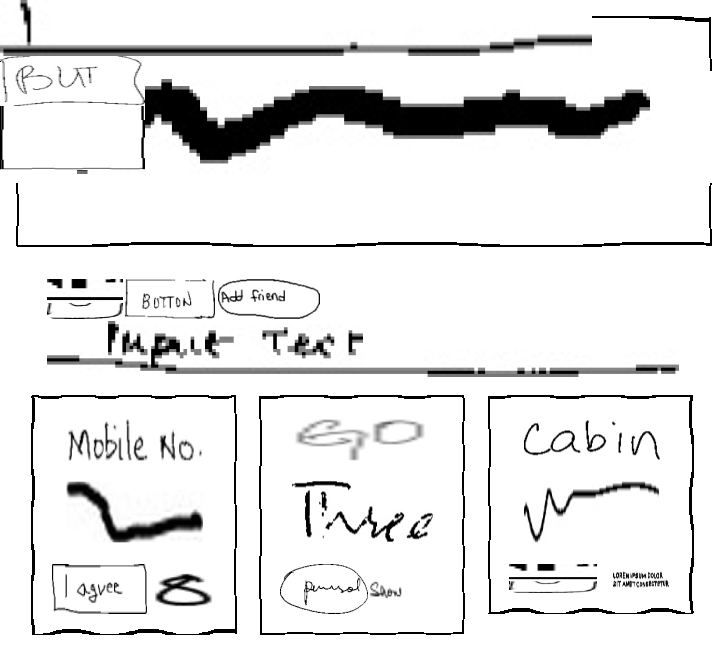 BUT
BUTTON Add friend
Text
Mobile No.
I agree 8
GO
Three
Show
cabin
LOREM IPSUM DOLOR
SIT AMET CONSECTETUR